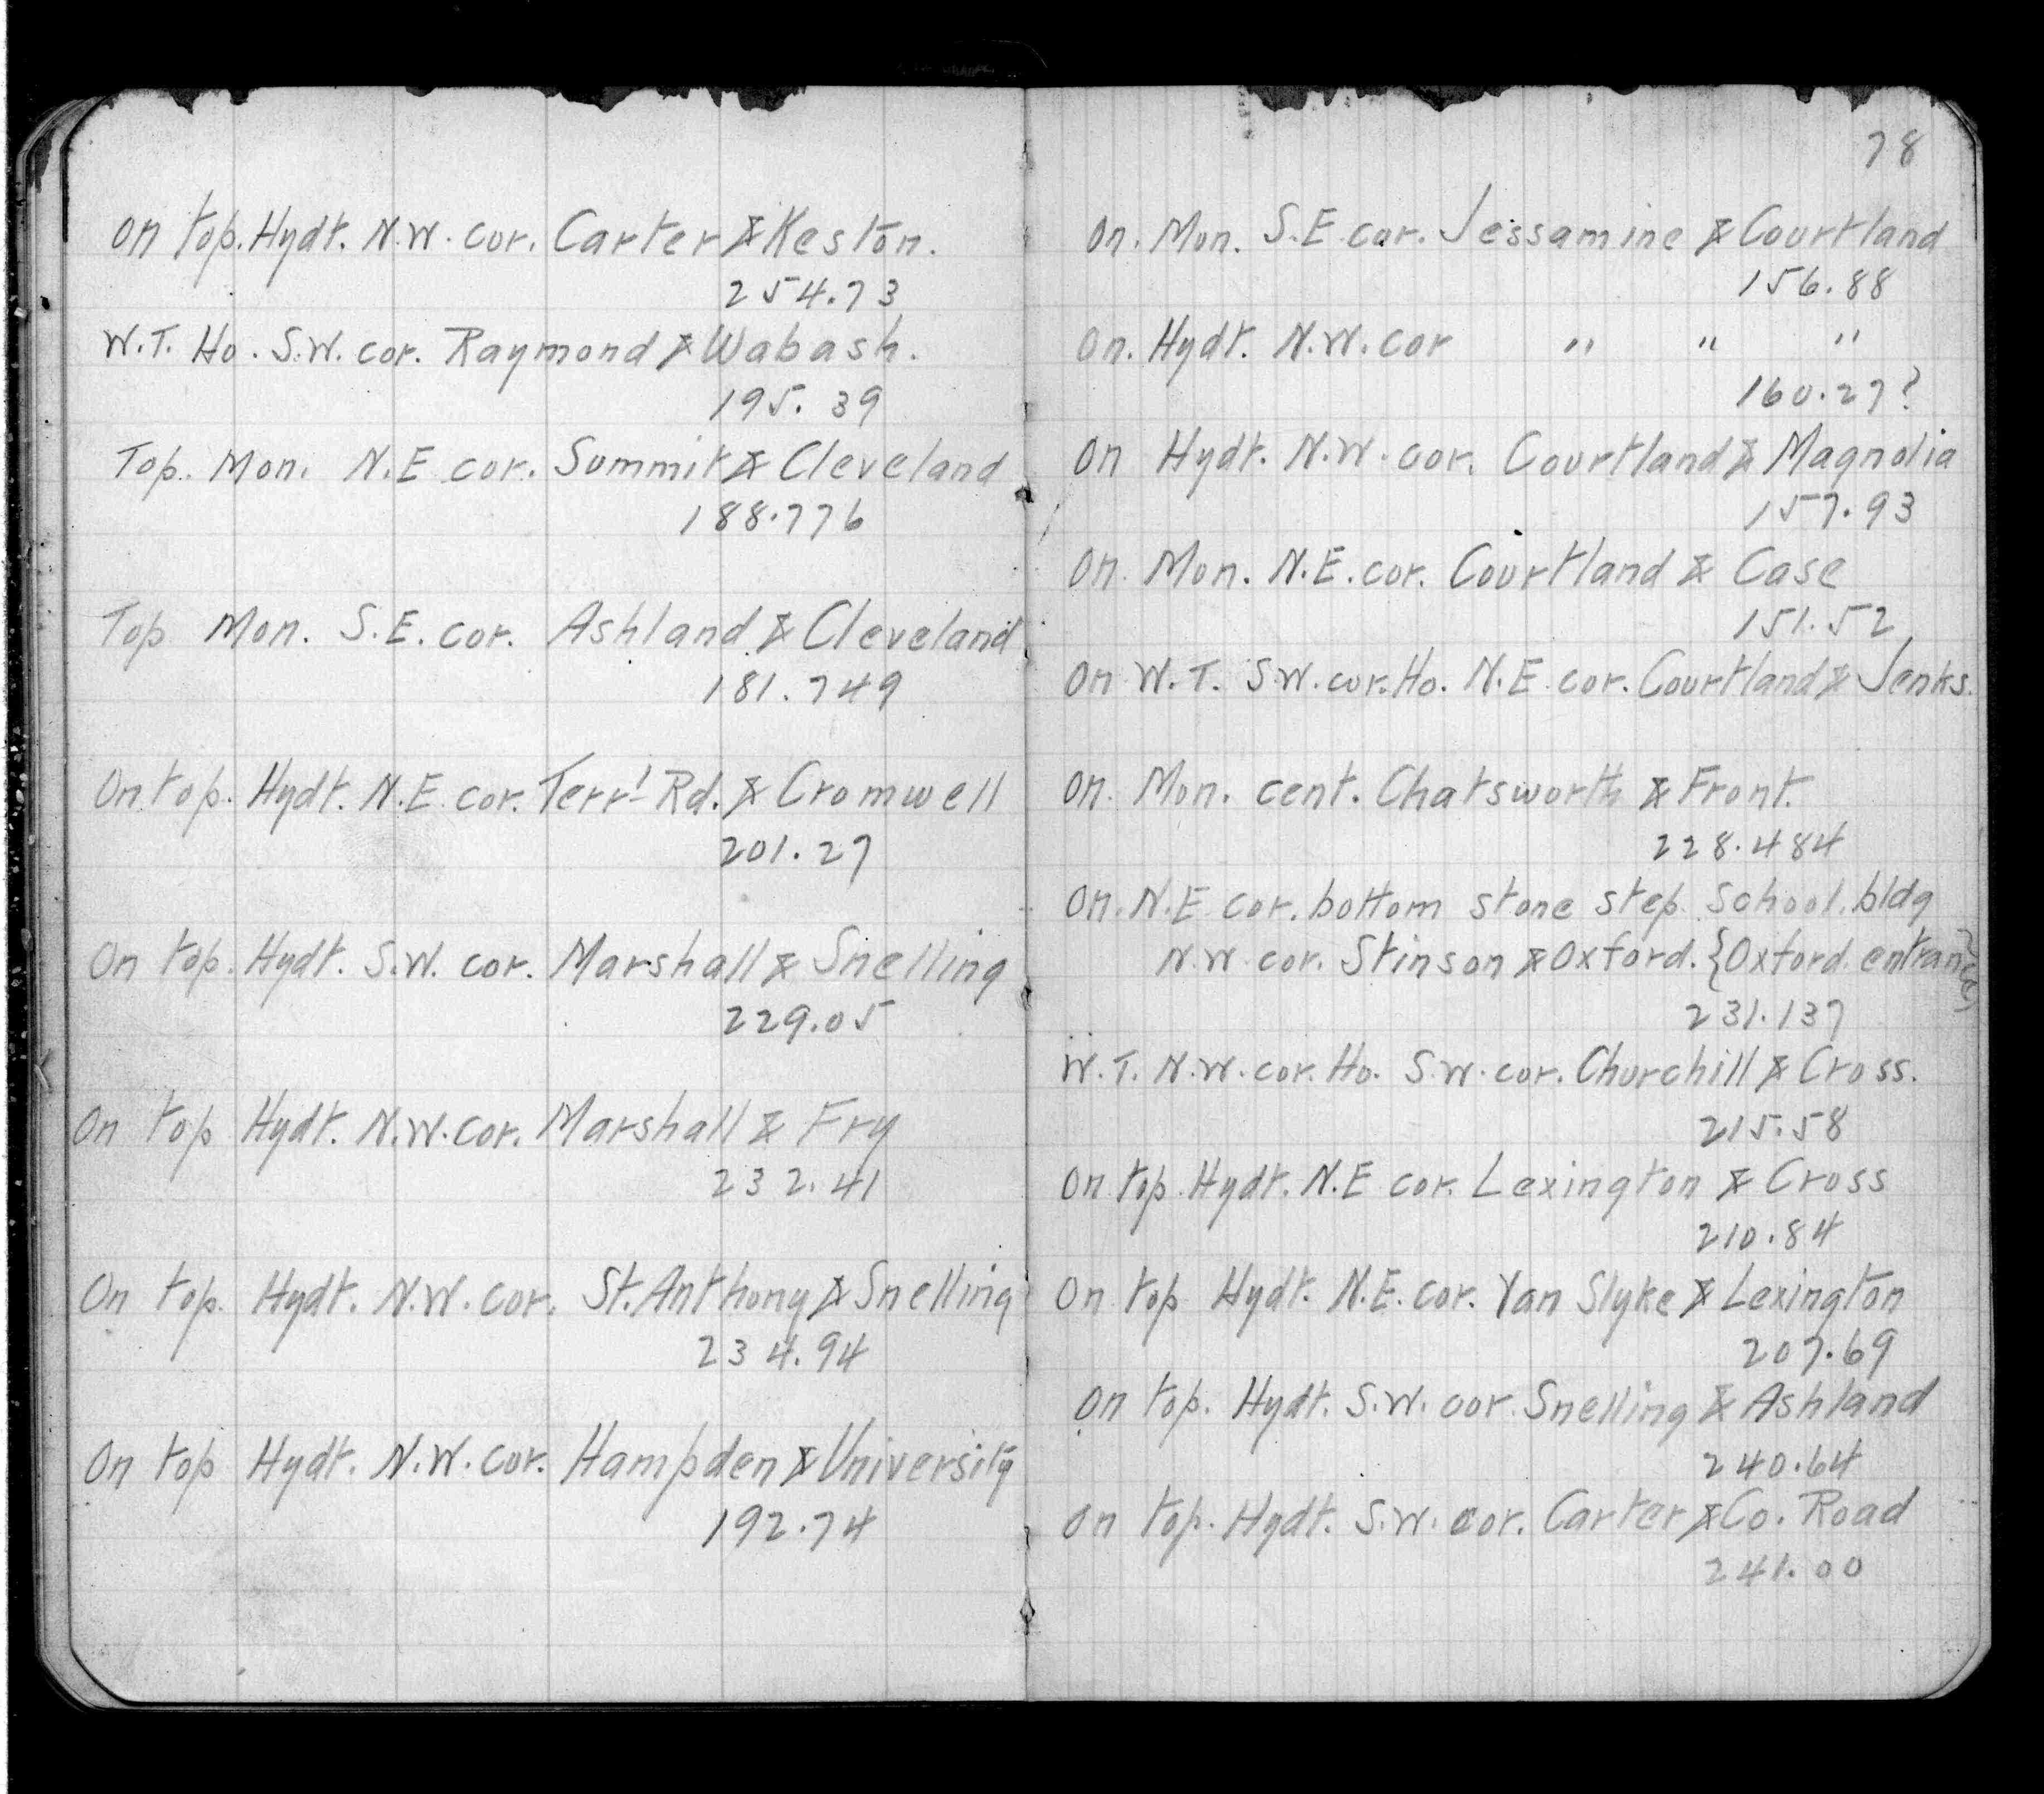 On top. Hydt. N.W. cor. Carter & Keston.
254.73
W.T. Ho. S.W. cor. Raymond & Wabash.
195.39
Top. Mon. N.E. cor. Summit & Cleveland
188.776
Top Mon. S.E. cor. Ashland & Cleveland
181.749
On top. Hydt. N.E. cor. Terr'l Rd. & Cromwell
201.27
On top. Hydt. S.W. cor. Marshall & Snelling
229.05
On top Hydt. N.W. cor. Marshall & Fry
232.41
On top. Hydt. N.W. cor. St. Anthony & Snelling
234.94
On top Hydt. N.W. cor. Hampden & University
192.74
78
On. Mon. S.E. cor. Jessamine & Courtland
156.88
On. Hydt. N.W. cor " " "
160.27?
On Hydt. N.W. cor. Courtland & Magnolia
157.93
On Mon. N.E. cor. Courtland & Case
151.52
On W.T. S.W. cor. Ho. N.E. cor. Courtland & Jenks.
On Mon. cent. Chatsworth & Front.
228.484
On. N.E. cor. bottom stone step School. bldg
N.W. cor. Stinson & Oxford. {Oxford entrance}
231.137
W.T. N.W. cor. Ho. S.W. cor. Churchill & Cross.
215.58
On top Hydt. N.E. cor. Lexington & Cross
210.84
On top Hydt. N.E. cor. Van Slyke & Lexington
207.69
On top. Hydt. S.W. cor Snelling & Ashland
240.64
On top. Hydt. S.W. cor. Carter & Co. Road
241.00